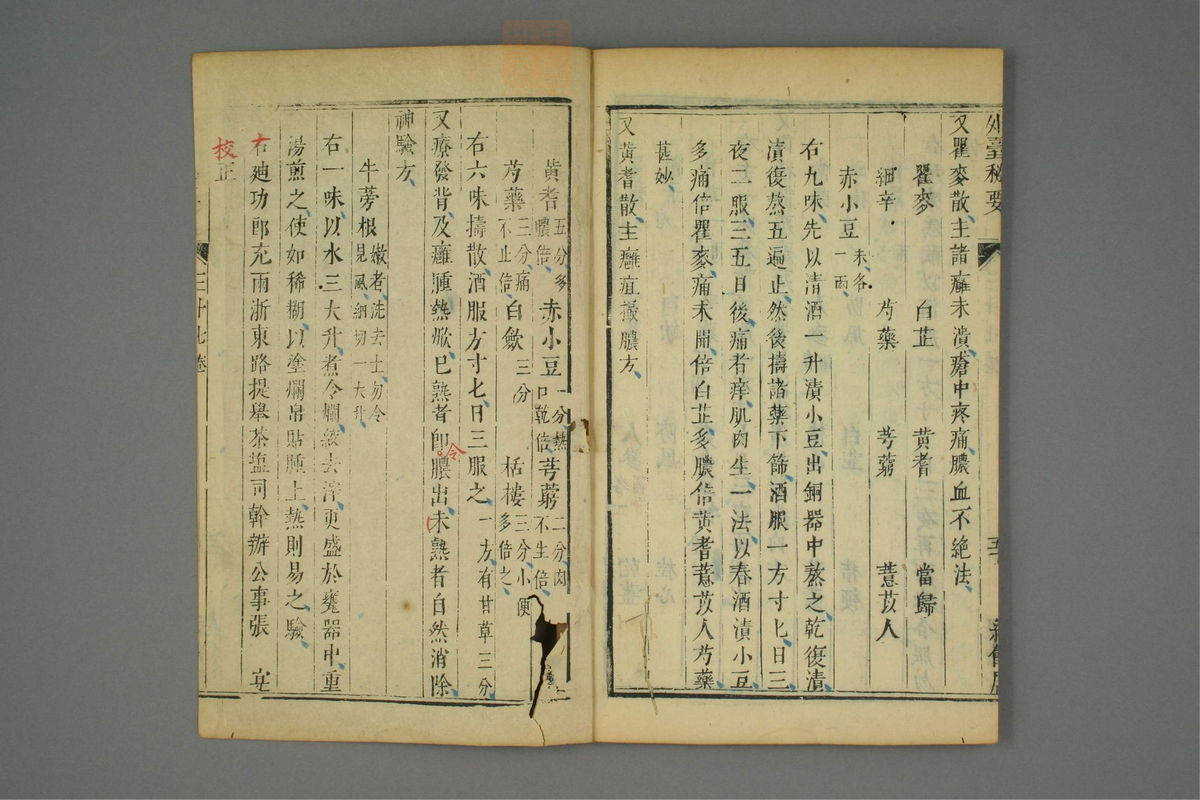 外臺秘要
又瞿麥散主諸癰未潰瘡中疼痛膿血不絶法
瞿麥 白芷 黄耆 當歸
細辛 芍藥 芎藭 薏苡人
赤小豆末各一兩
右九味先以清酒一升漬小豆出銅器中熬之乾復漬
漬復熬五遍止然後擣諸藥下篩酒服一方寸匕日三
夜二服三五日後痛者痒肌肉生一法以春酒漬小豆
多痛倍瞿麥痛未開倍白芷多膿倍黄耆薏苡人芍藥
甚妙
又黄耆散主癰疽撮膿方
黄耆五分多膿倍 赤小豆一分熱口乾倍 芎藭二分肉不生倍
芍藥三分痛不止倍 白歛三分 栝樓三分小便多倍之
右六味擣散酒服方寸七日三服之一方有甘草三分
又療發背及癰腫熱焮已熟者即令膿出未熟者自然消除
神驗方
牛蒡根嫩者洗去土勿令見風細切一大升
右一味以水三大升煮令爛絞去滓更盛於甕器中重
湯煎之使如稀糊以塗爛帛貼腫上熱則易之驗
右廸功郎充兩浙東路提舉茶塩司幹辦公事張 寔
校正